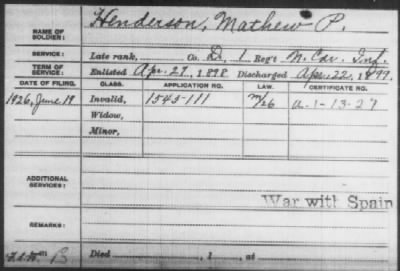 NAME OF SOLDIER: Henderson, Mathew P.
SERVICE: Late rank, Co. D, 1 Reg't N. Car. Inf.
TERM OF SERVICE: Enlisted Apr. 27, 1898 Discharged Apr. 22, 1899.
DATE OF FILING. CLASS. APPLICATION NO. LAW. CERTIFICATE NO.
1926, June 19 Invalid, 1545-111 a-1-13-27
Widow,
Minor,
ADDITIONAL SERVICES:
War with Spain
REMARKS:
B Died , 1 , at